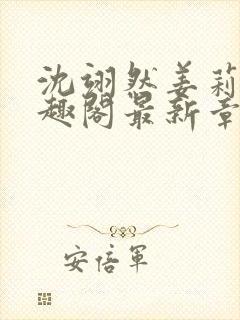 沈翊然姜莉
趣阁最新章
安倍军